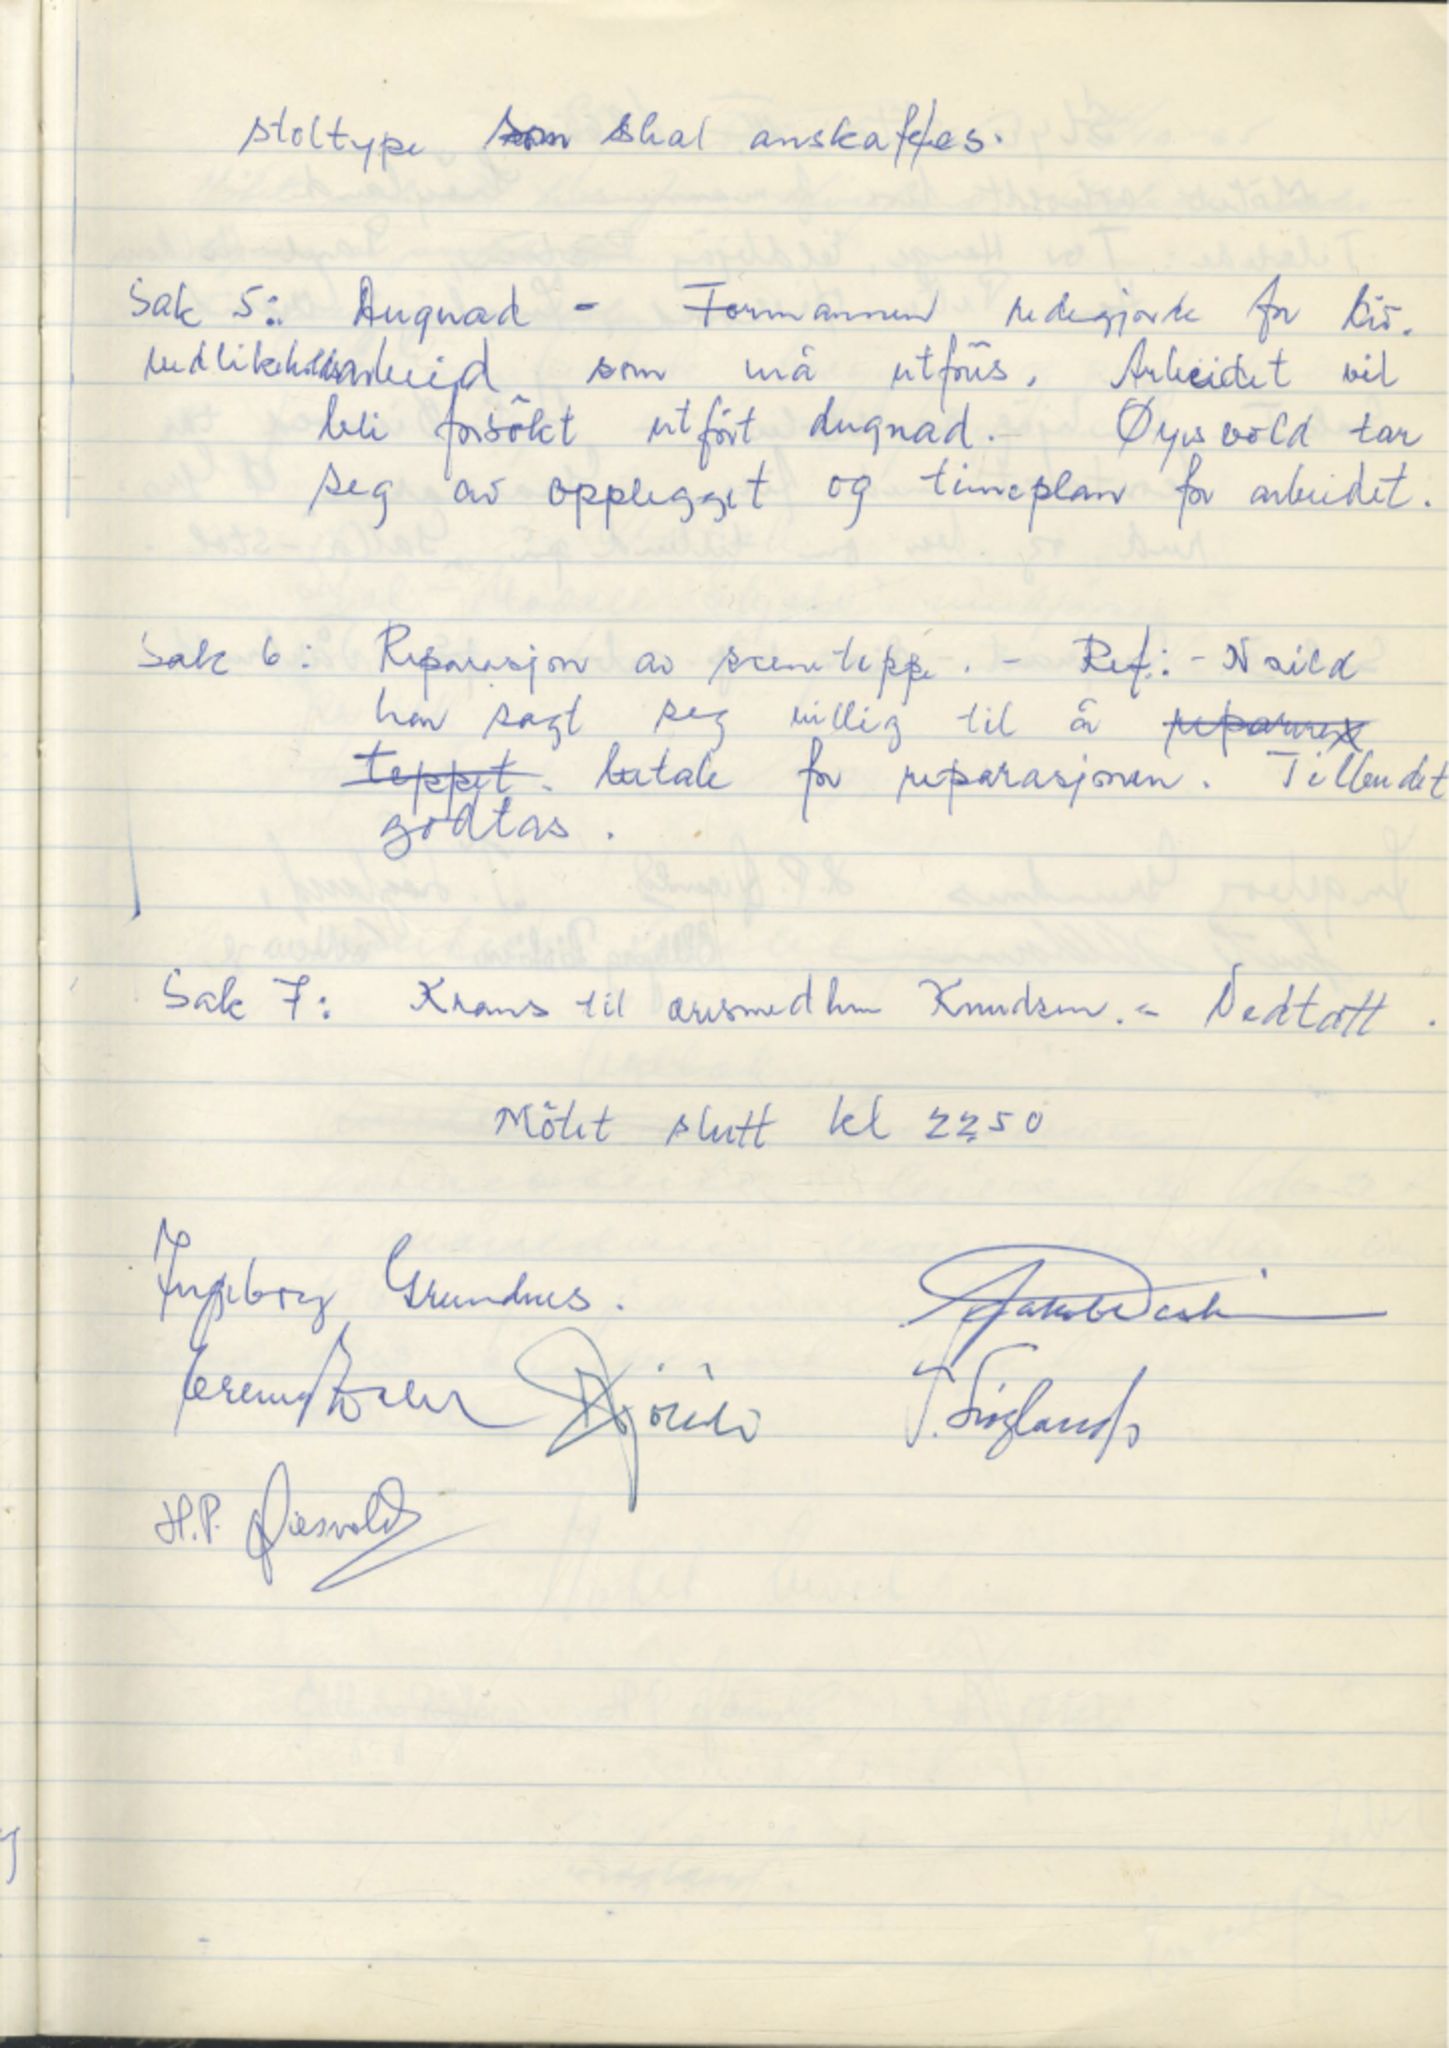 stoltype som skal anskaffes.
Sak 5: Dugnad - Formannen redegjorde for div.
vedlikeholdsarbeid som må utföres. Arbeidet vil
bli forsökt utfört dugnad. - Øyesvold tar
seg av opplegget og timeplan for arbeidet.
Sak 6: Reparasjon av sceneteppe. - Ref: -
har sagt seg villig til å reparere
teppet. betale for reparasjonen. Tilbudet
godtas.
Sak 7: Krans til Knudsen. - Vedtatt.
Mötet slutt kl 2250
Ingeborg Grundnes.
T. Siogland
H.P. Øiesvold